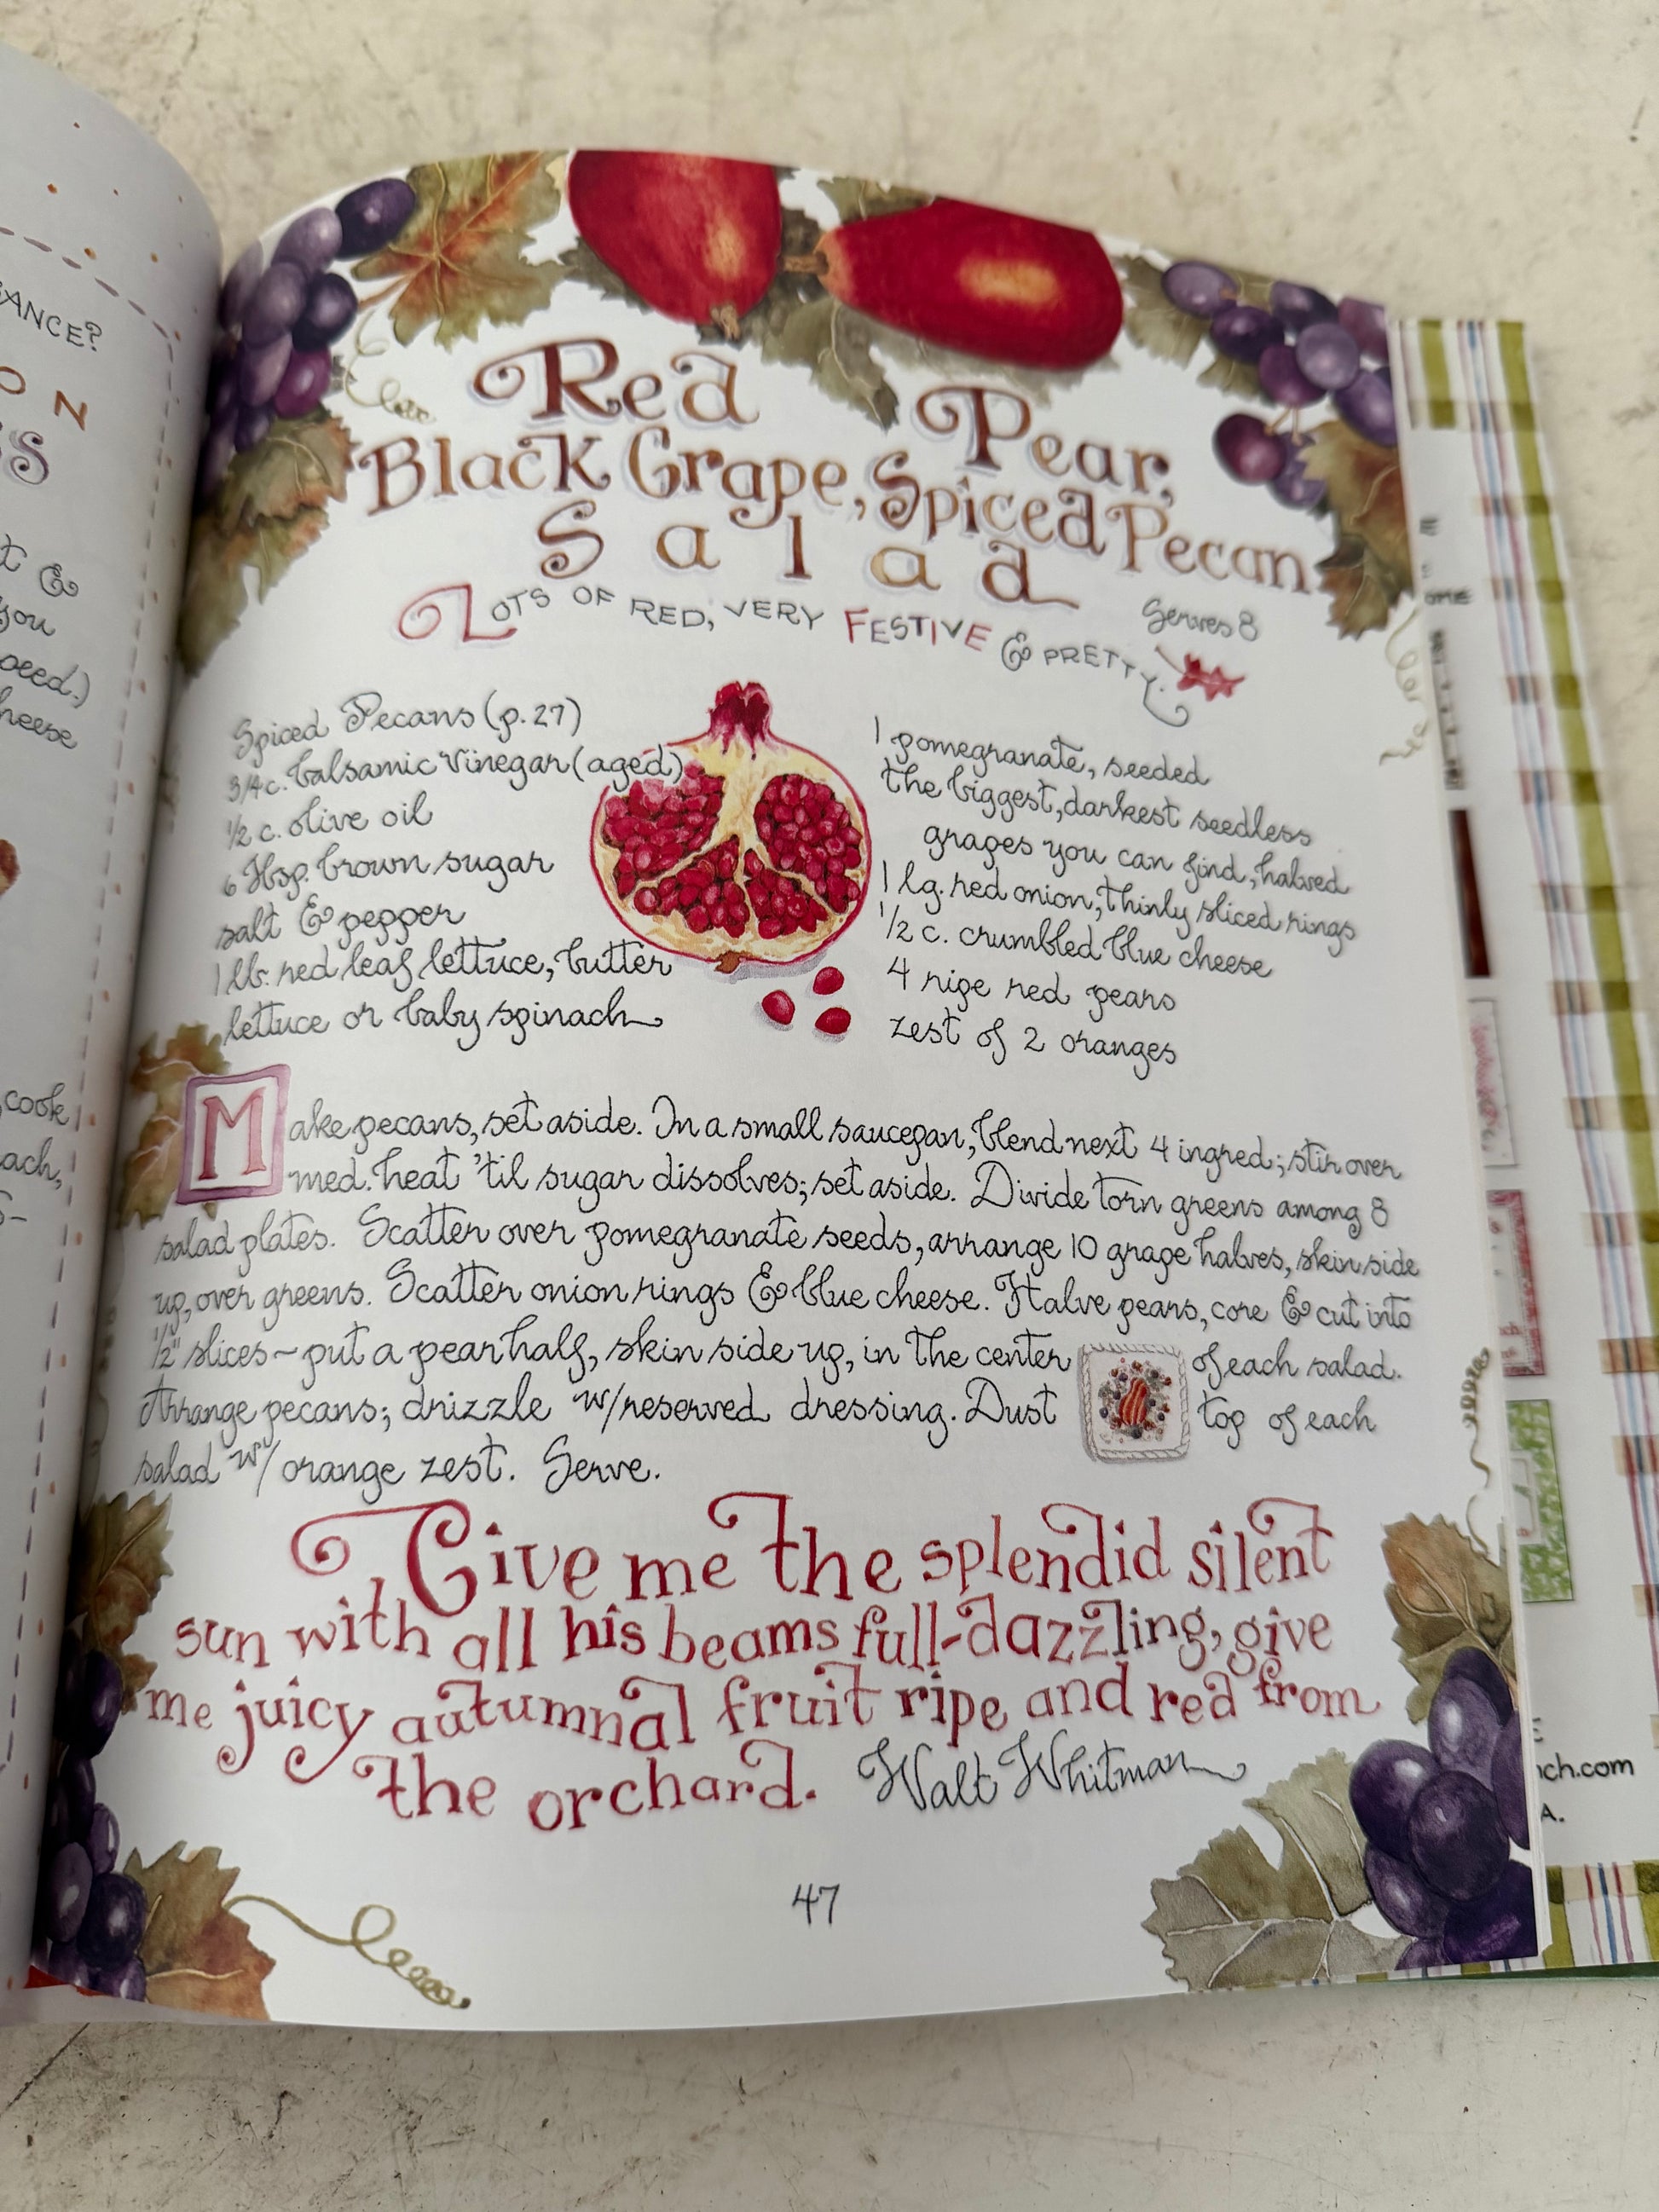 SANCE?
O N
S
t &
you
oeed.)
heese
cook
ach,
Red Pear,
Black Grape, Spiced Pecan
Salad
Lots of red, very Festive & pretty.
Serves 8
Spiced Pecans (p. 27)
3/4 c. balsamic vinegar (aged)
1/2 c. olive oil
6 Tbsp. brown sugar
salt & pepper
1 lb. red leaf lettuce, butter
lettuce or baby spinach
1 pomegranate, seeded
the biggest, darkest seedless
grapes you can find, halved
1 lg. red onion, thinly sliced rings
1/2 c. crumbled blue cheese
4 ripe red pears
zest of 2 oranges
Make pecans, set aside. In a small saucepan, blend next 4 ingred; stir over
med. heat 'til sugar dissolves; set aside. Divide torn greens among 8
salad plates. Scatter over pomegranate seeds, arrange 10 grape halves, skin side
up, over greens. Scatter onion rings & blue cheese. Halve pears, core & cut into
1/2" slices ~ put a pear half, skin side up, in the center of each salad.
Arrange pecans; drizzle w/reserved dressing. Dust top of each
salad w/ orange zest. Serve.
Give me the splendid silent
sun with all his beams full-dazzling, give
me juicy autumnal fruit ripe and red from
the orchard. Walt Whitman
47
ch.com
A.